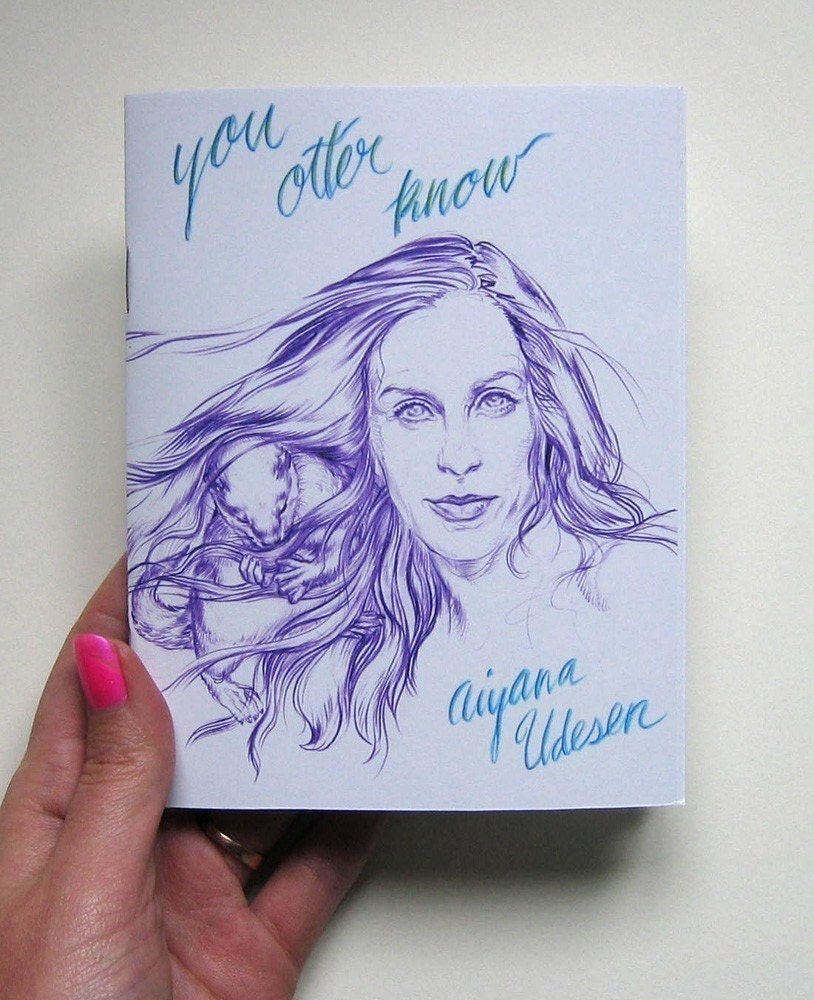 you
otter
know
aiyana
Udesen